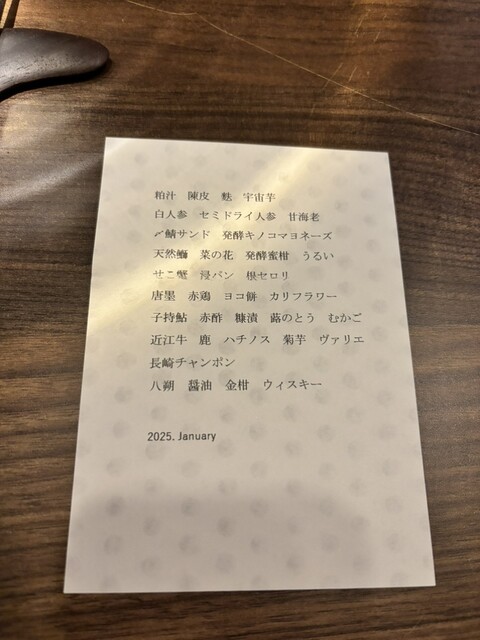 粕汁　陳皮　麩　宇宙芋
白人参　セミドライ人参　甘海老
〆鯖サンド　発酵キノコマヨネーズ
天然鰤　菜の花　発酵蜜柑　うるい
せこ蟹　浸パン　根セロリ
唐墨　赤鶏　ヨコ餅　カリフラワー
子持鮎　赤酢　糠漬　蕗のとう　むかご
近江牛　鹿　ハチノス　菊芋　ヴァリエ
長崎チャンポン
八朔　醤油　金柑　ウィスキー
2025. January